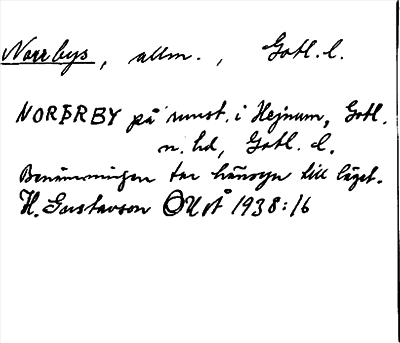 Norrbys, allm., Gotl. l.
NORÞRBY på runst. i Hejnum, Gotl.
n. hd, Gotl. l.
Benämningen tar hänsyn till läget.
H. Gustavson OUÅ 1938:16